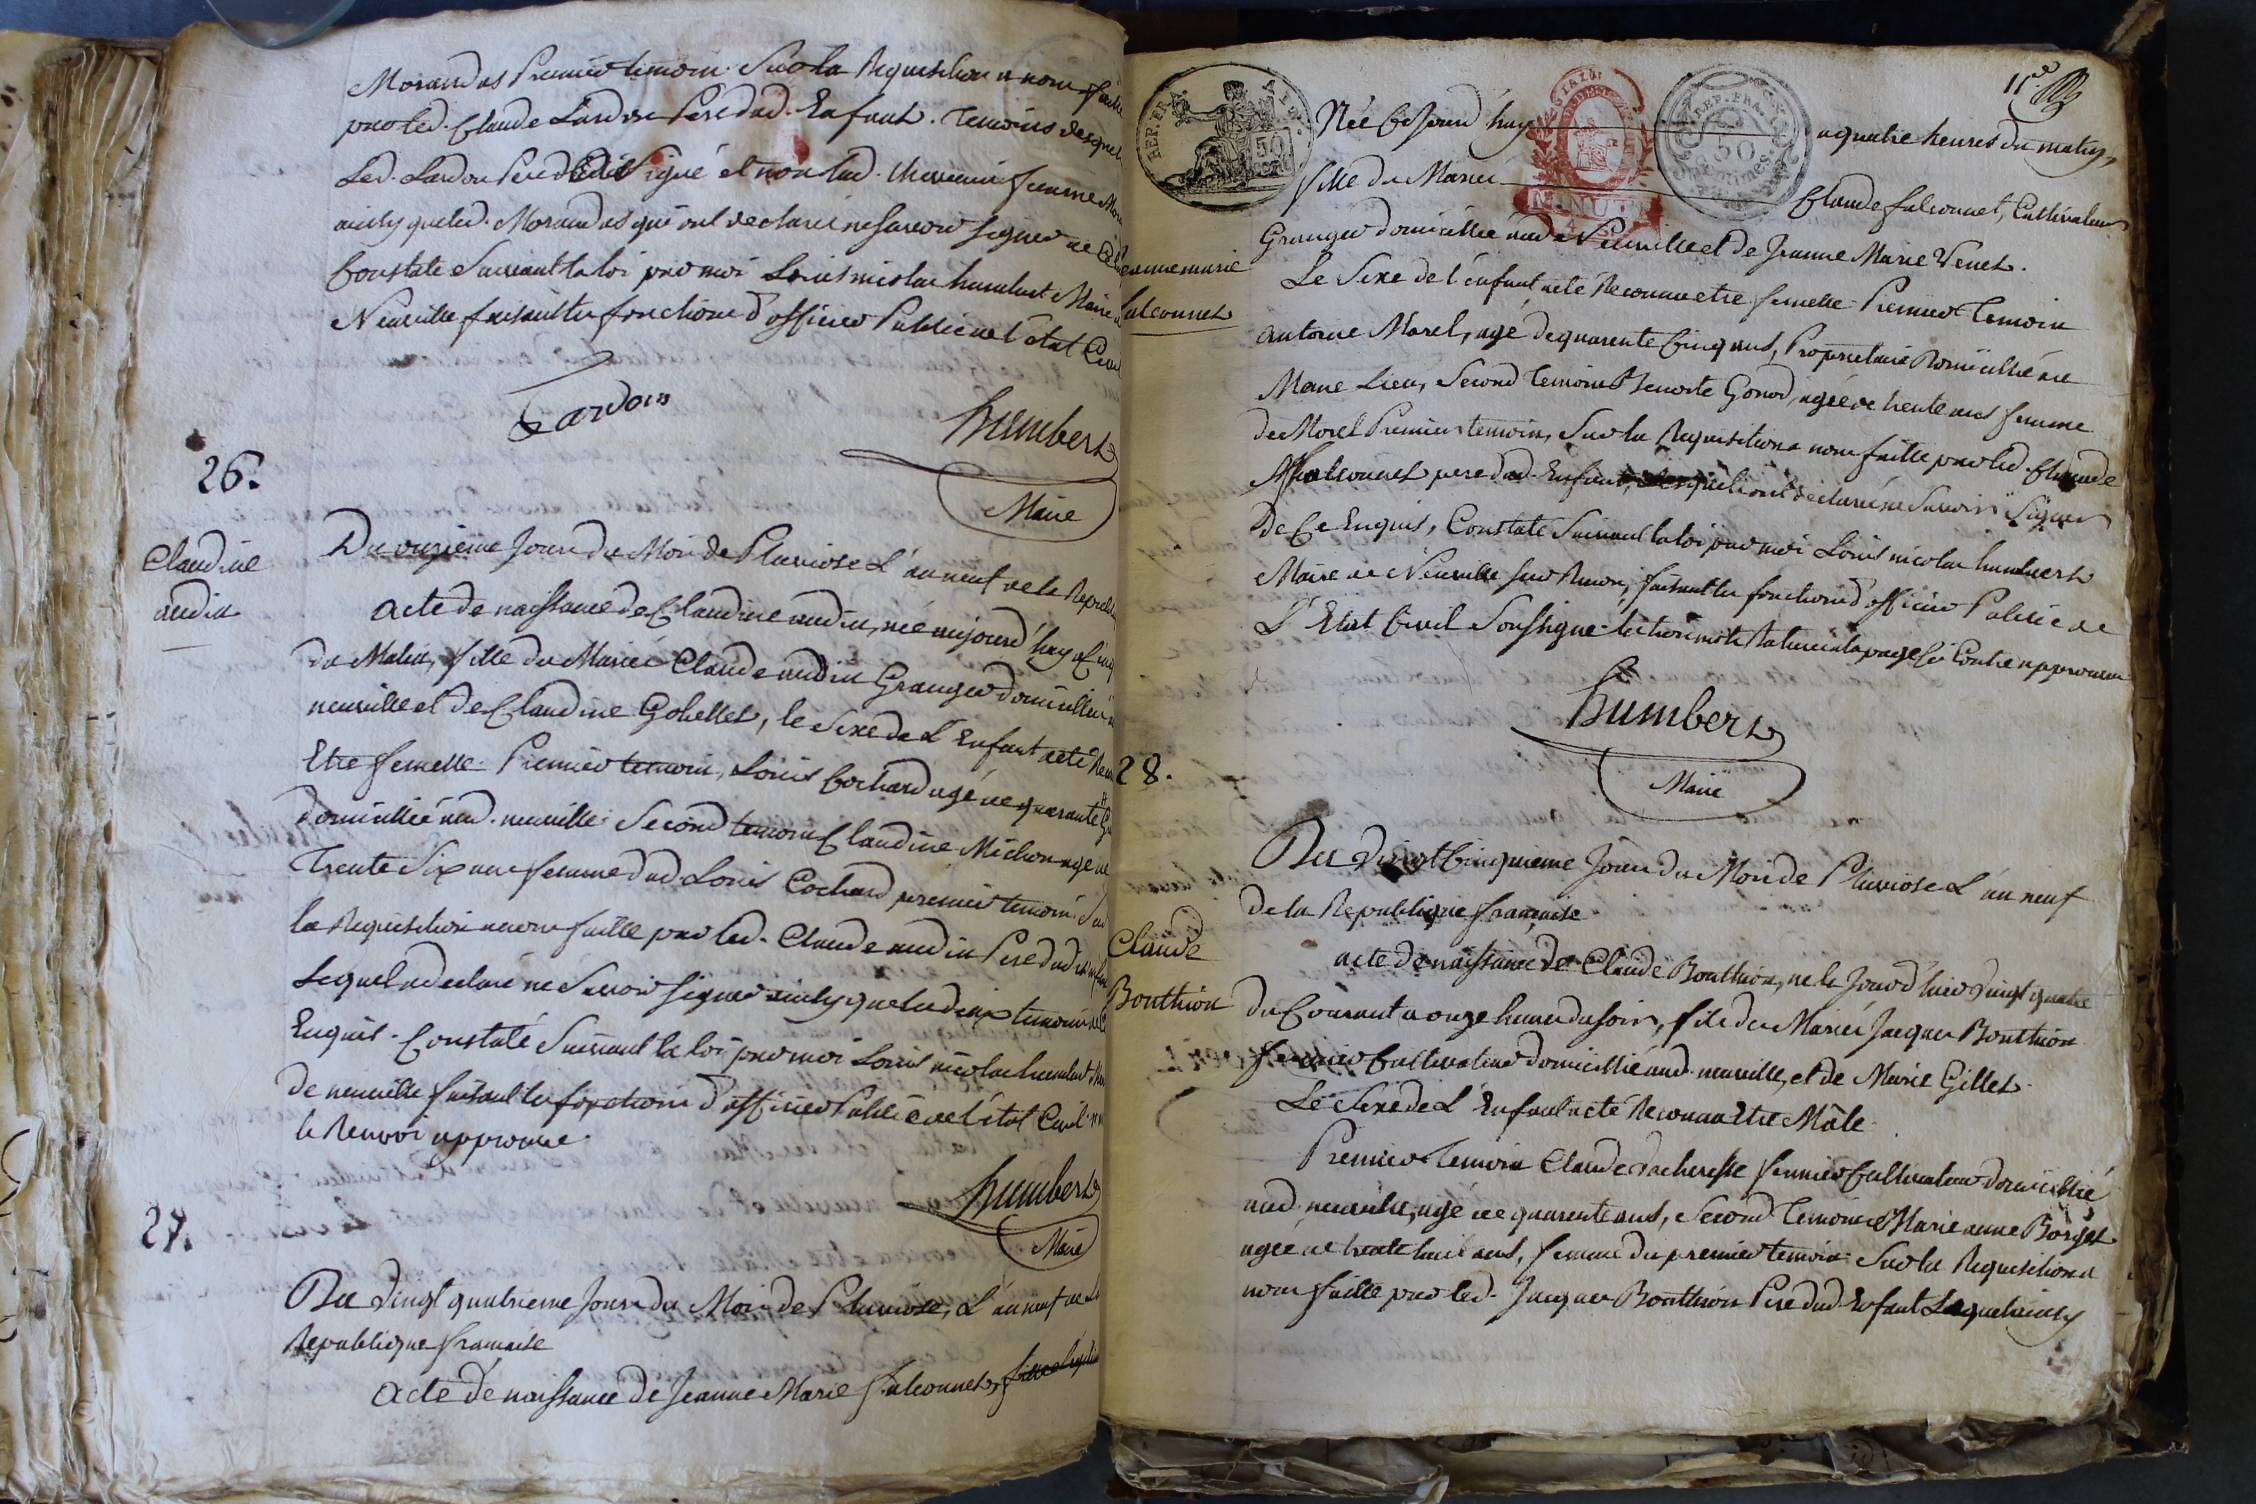 Morandas Premier temoin Sur la Requisition a nous faite
par led. Claude Lardon Pere dud. Enfant. temoins desquels
Led. Lardon Pere Signé et non lad. femme
ainsy queled. Morandas qui ont declaré ne Savoir signer de ce
Constaté Suivant la loi par moi Louis nicolas humbert Maire de
Neuville faisant les fonctions d'officier Public de l'état Civil
Lardon
humbert
Maire
26.
Claudine
audin
Du onzieme Jour du Mois de Pluviose L'an neuf de la Republi
acte de naissance de Claudine audin, née aujourd'huy a cinq
du Matin, fille du Mariés Claude audin Granger domicillié a
neuville et de Claudine Gobellet, le Sexe de L'Enfant a eté Reco
Etre femelle. Premier temoin, Louis Cochard agé de quarante
domicillié aud. neuville Second temoin Claudine Michon agé de
Trente Six ans femme dud Louis Cochard premier temoin. Sur
la Requisition a nous faitte par led. Claude audin Pere dud enfant
Lequel a declaré ne Savoir signer ainsy que les deux temoins de ce
Enquis. Constaté Suivant la loi par moi Louis nicolas humbert Maire
de neuville faisant les fonctions d'officier Public de l'état Civil
le Renvoi approuvé.
humbert
Maire
27.
Du Vingt quatrieme Jour du Mois de Pluviose, L'an neuf de La
Republique francaise
acte de naissance de Jeanne Marie falconnet,
11e
REP. FRA.
50
REP. FRA.
50
Centimes
MINUTE
Jeanne marie
falconnet
Née ce Jourd'huy a quatre heures du matin,
fille du Mariés Claude falconnet, Cultivateur
Granger domicillié aud. Neuville et de Jeanne Marie Venet.
Le Sexe de l'enfant a eté Reconnu etre femelle. Premier Temoin
antoine Morel, agé de quarente Cinq ans, Proprietaire Domicillié au
Meme Lieu, Second temoin Benoite Gonod, agée de trente ans femme
de Morel Premier temoin, Sur la Requisition a nous faitte par led. Claude
falconnet pere dud. Enfant, Lesquels ont declaré ne Savoir Signer
De Ce Enquis, Constaté Suivant la loi par moi Louis nicolas humbert
Maire de Neuville sur Renon, faisant les fonctions d'officier Public de
L'Etat Civil Soussigné. Dix mots Raturés a la page Ci Contre approuvés
humbert
Maire
28.
Claude
Bonthion
Du Vingt Cinquieme Jour du Mois de Pluviose L'an neuf
de la Republique francaise
acte de naissance de Claude Bonthion, né le Jour d'hier Vingt quatre
du Courant a onze heures du soir, fils des Mariés Jacques Bonthion
fermier Cultivateur domicillié aud. neuville, et de Marie Gillet.
Le Sexe de L'Enfant a eté Reconnu Etre Mâle.
Premier Temoin Claude fermier Cultivateur domicillié
aud. neuville, agé de quarente ans, Second Temoin Marie anne Borget
agée de trente huit ans, femme du premier temoin Sur la Requisition a
nous faitte par led. Jacques Bonthion Pere dud Enfant Lequel ainsy